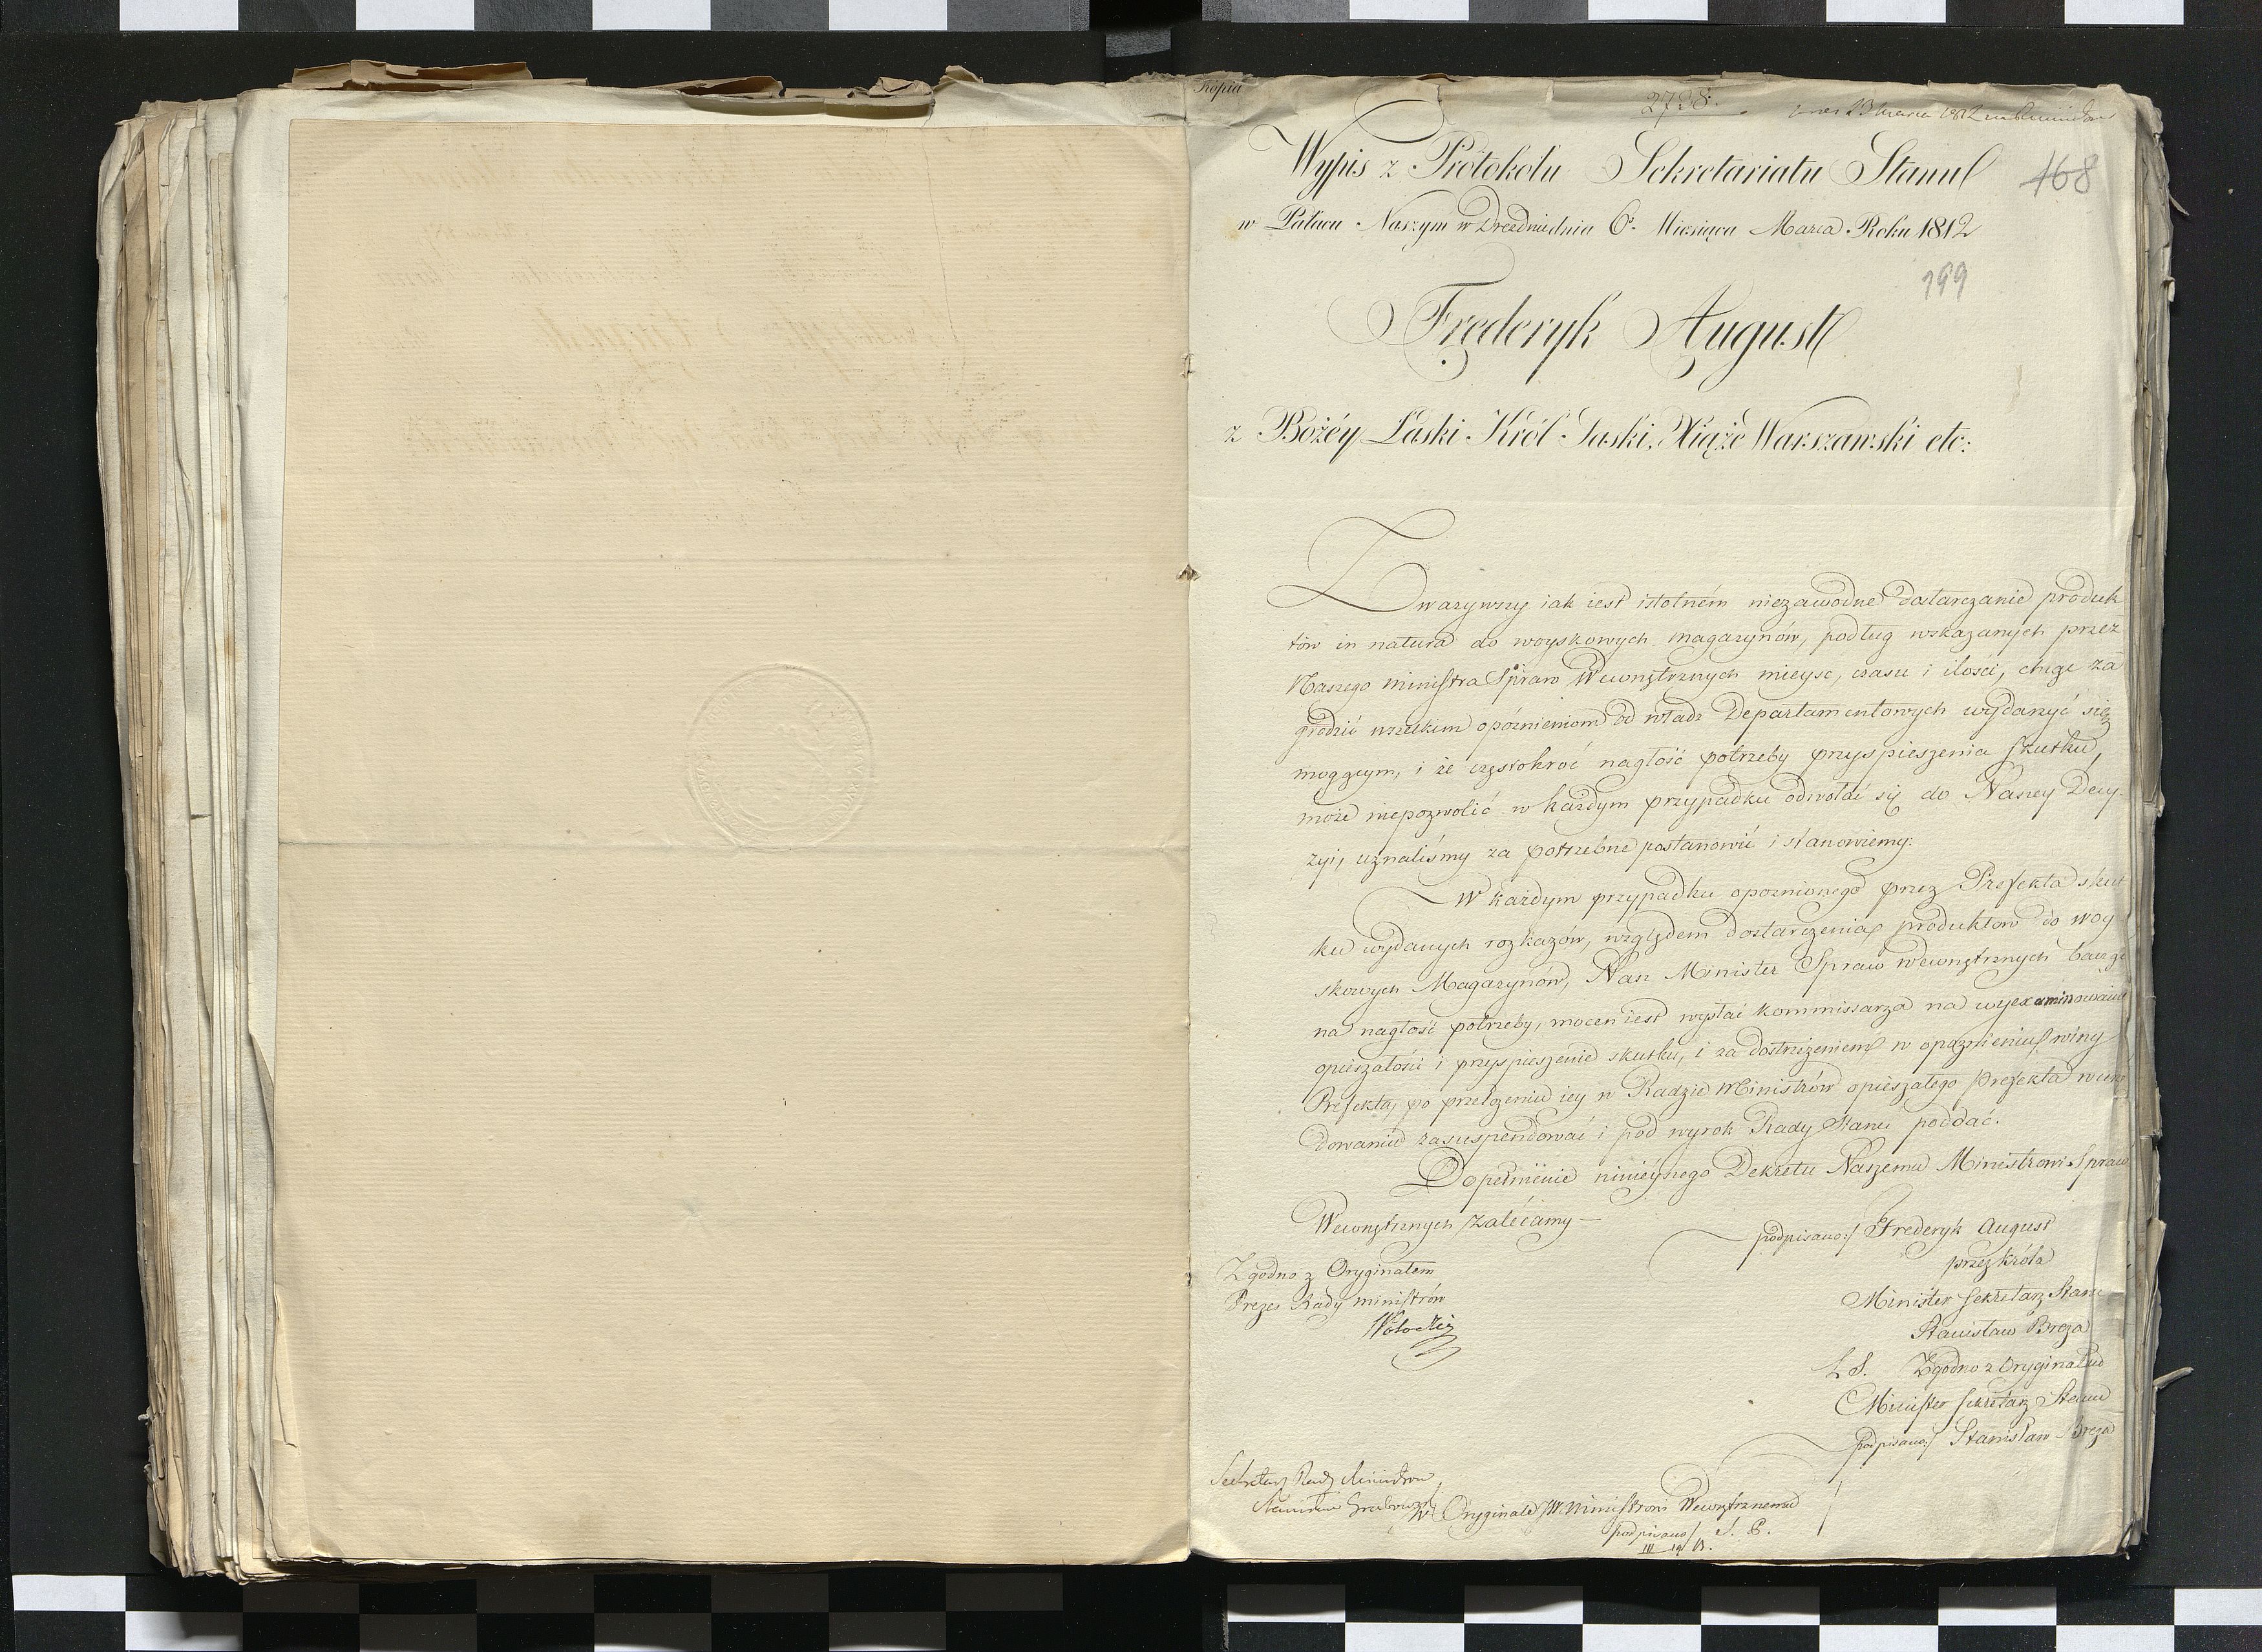 Kopia
2738.
468
Wypis z Protokołu Sekretariatu Stanu
w Pałacu Naszym w Dreźdnie dnia 6º Miesiąca Marca Roku 1812
199
Frederyk August
z Bożéy Łaski Król Saski, Xiążę Warszawski etc:
Zważywszy iak iest istotném niezawodne dostarczanie produk
tów in natura do woyskowych magazynów, podług wskazanych przez
Naszego ministra Spraw Wewnętrznych mieysc, czasu i ilości, chcąc za
grodzić wszelkim opóźnieniom od władz Departamentowych wydarzyć się
mogącym, i że częstokroć nagłość potrzeby przyspieszenia skutku,
może niepozwolić w każdym przypadku odwołać się do Naszey Decy-
zyi, uznaliśmy za potrzebne postanowić i stanowiemy:
W każdym przypadku opoznionego przez Prefekta skut
ku wydanych rozkazów, względem dostarczenia produktow do woy
skowych Magazynów, Nasz Minister Spraw Wewnętrznych bacząc
na nagłość potrzeby, mocen iest wysłać kommissarza na wyexaminowanie
opieszałości i przyspieszenie skutku, i za dostrzeżeniem w opaznieniu winy
Prefekta, po przełożeniu iey w Radzie Ministrów opieszałego Prefekta w urzę
dowaniu zasuspendować i pod wyrok Rady Stanu poddać.
Dopełnienie ninieyszego Dekretu Naszemu Ministrowi Spraw
Wewnętrznych zalécamy —
podpisano:/ Frederyk August
przez króla
Minister Sekretarz Stanu
Stanisław Breza
L S. Zgodno z Oryginałem
Minister Sekretarz Stanu
podpisano:/ Stanisław Breza
Zgodno z Oryginałem
Prezes Rady ministrów
Sekretarz Rady Ministrow
Stanisław Grabowski
W Oryginale JW Ministrowi Wewnętrznemu
podpisano/ S. P.